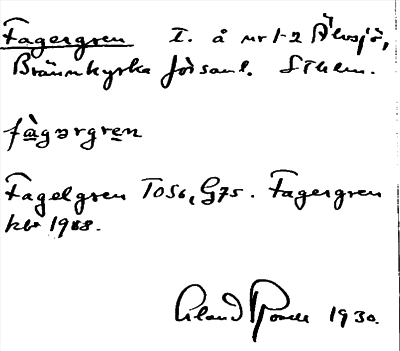 Fagergren I. å nr 1-2 Älvsjö,
Brännkyrka församl. Sthlm.
fàgərgren
Fagelgren TO56, G75. Fagergren
kbr 1988.
Erland Rosell 1930.